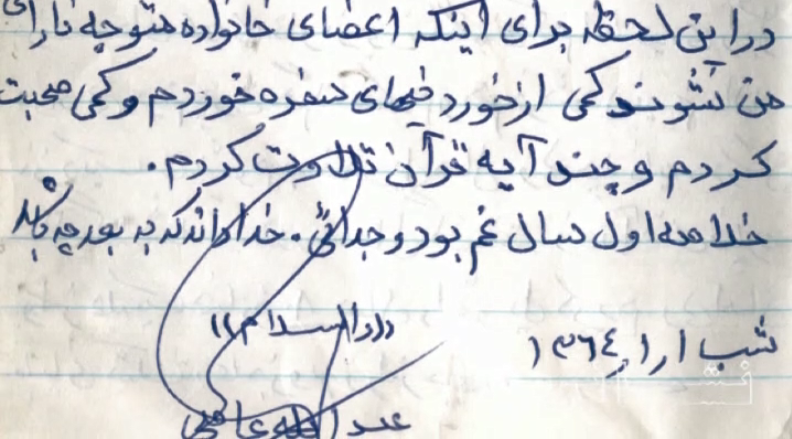 در این لحظه برای اینکه اعضای خانواده متوجه نارای
من نشوند کمی از خوردنیهای سفره خوردم و کمی صحبت
کردم و چند آیه قرآن تلاوت کردم.
خلاصه اول سال غم بود و جدائی. خدا داند که به بعد چه باشد
شب ۱ر۱ر۱۳۶٤ ((والسلام))
عبدا